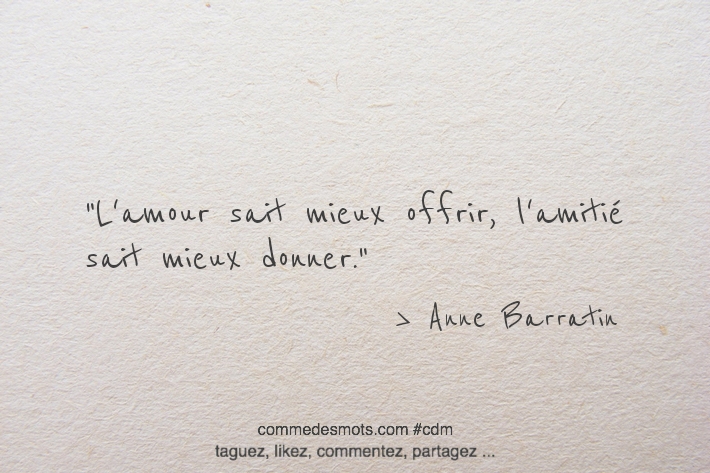 "L'amour sait mieux offrir, l'amitié
sait mieux donner."
> Anne Barratin
commedesmots.com #cdm
taguez, likez, commentez, partagez ...